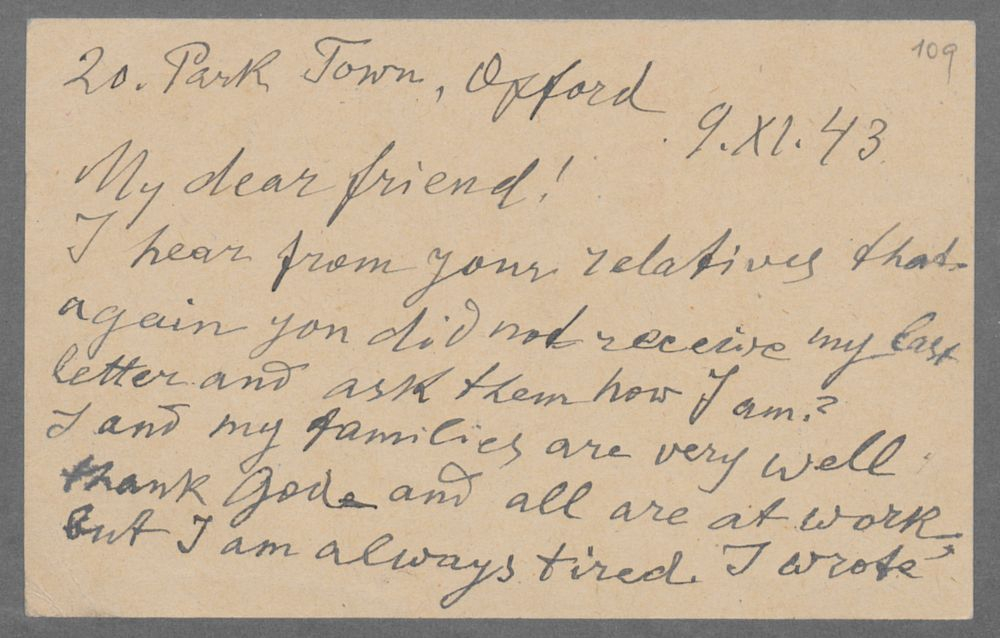 109
20. Park Town, Oxford
9.XI.43
My dear friend!
I hear from your relatives that
again you did not receive my last
letter and ask them how I am?
I and my families are very well
thank God and all are at work,
but I am always tired. I wrote